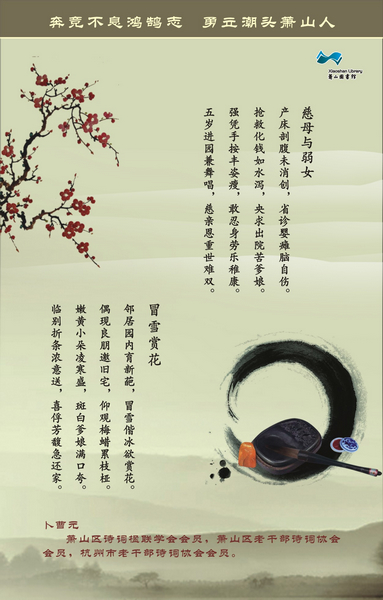 奔竞不息鸿鹄志 勇立潮头萧山人
Xiaoshan Library
萧山图书馆
慈母与弱女
产床剖腹未消创，省诊婴瘫脑自伤。
抢救化钱如水泻，央求出院苦爹娘。
强凭手按丰姿瘦，敢忍身劳乐稚康。
五岁进园兼舞唱，慈亲恩重世难双。
冒雪赏花
邻居园内育新葩，冒雪偕冰欲赏花。
偶现良朋邀旧宅，仰观梅蜡累枝桠。
嫩黄小朵凌寒盛，斑白爹娘满口夸。
临别折条浓意送，喜俘芳馥急还家。
卜曹元
萧山区诗词楹联学会会员，萧山区老干部诗词协会
会员，杭州市老干部诗词协会会员。